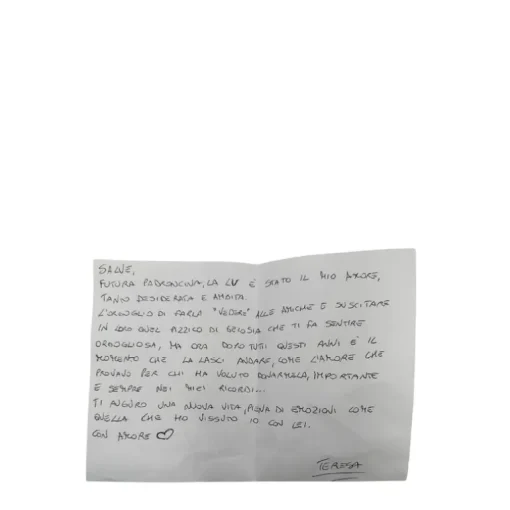 SALVE,
FUTURA PADRONCINA, LA LV È STATO IL MIO AMORE,
TANTO DESIDERATA E AMBITA.
L'ORGOGLIO DI FARLA "VEDERE" ALLE AMICHE E SUSCITARE
IN LORO QUEL PIZZICO DI GELOSIA CHE TI FA SENTIRE
ORGOGLIOSA, MA ORA DOPO TUTTI QUESTI ANNI È IL
MOMENTO CHE LA LASCI ANDARE, COME L'AMORE CHE
PROVAVO PER CHI HA VOLUTO DONARMELA, IMPORTANTE
E SEMPRE NEI MIEI RICORDI...
TI AUGURO UNA NUOVA VITA, PIENA DI EMOZIONI COME
QUELLA CHE HO VISSUTO IO CON LEI.
CON AMORE ♡
TERESA